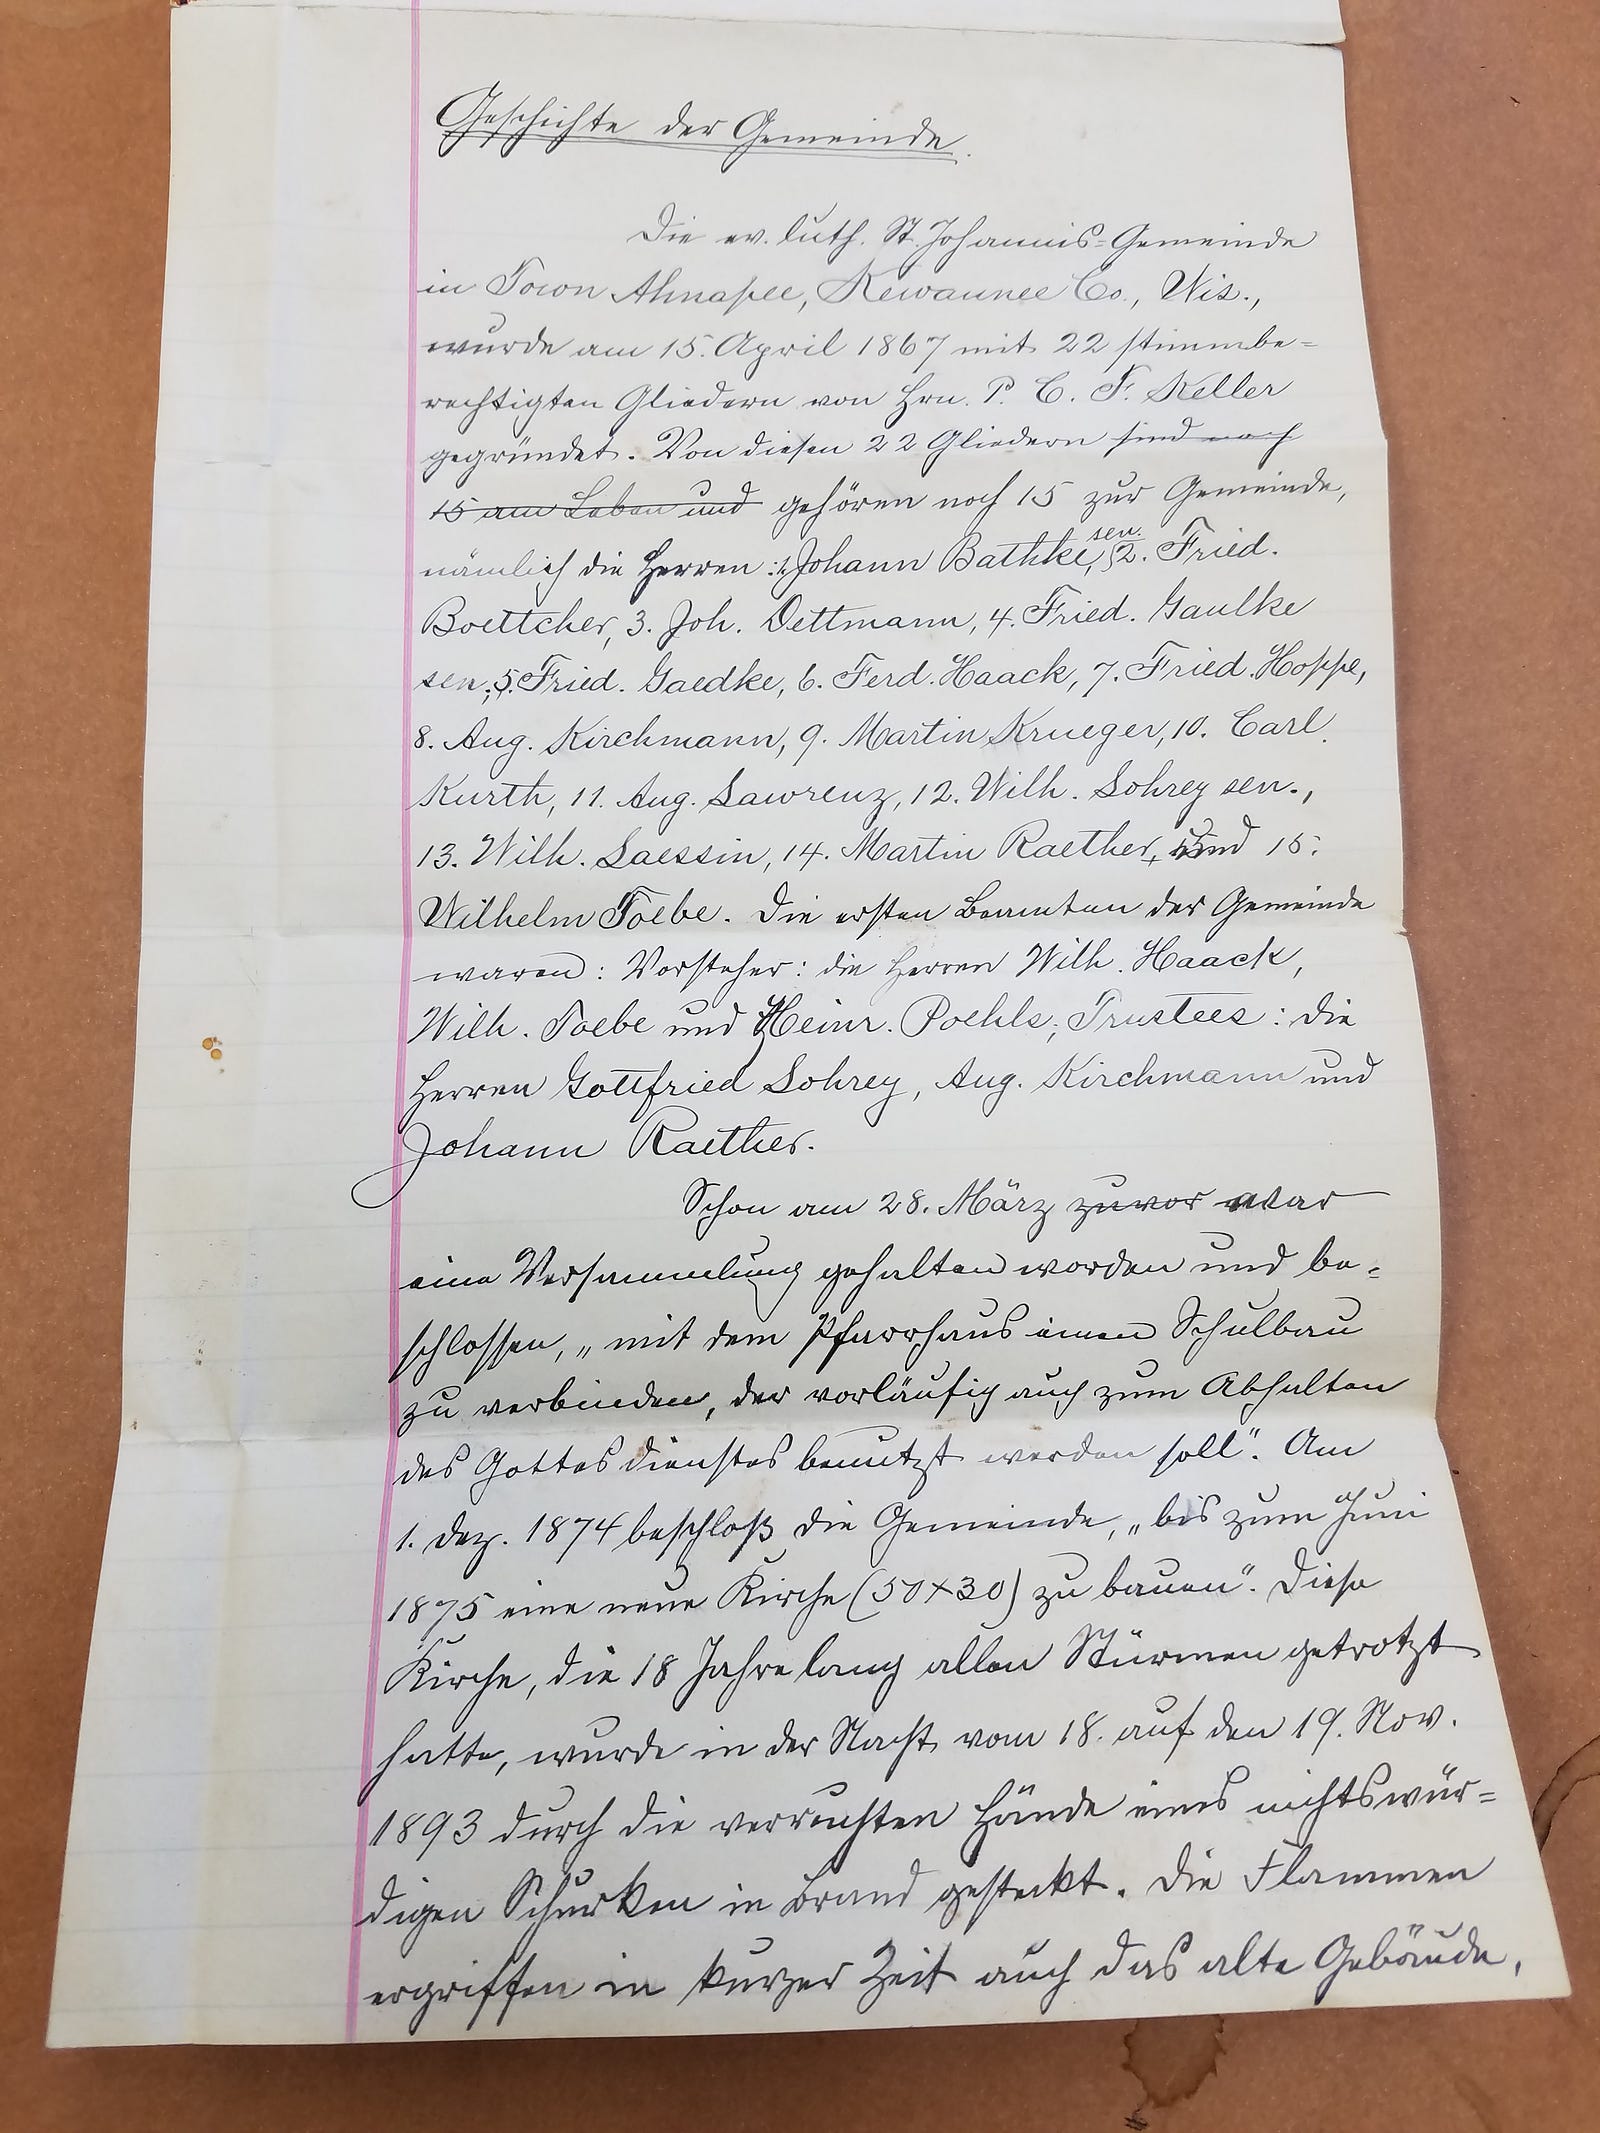 Geschichte der Gemeinde.
Die ev. luth. St. Johannis-Gemeinde
in Town Ahnapee, Kewaunee Co., Wis.,
wurde am 15. April 1867 mit 22 stimmbe-
rechtigten Gliedern von Hrn. P. C. F. Keller
gegründet. Von diesen 22 Gliedern sind noch
15 am Leben und gehören noch 15 zur Gemeinde,
nämlich die Herren: 1. Johann Bathke, sen. 2. Fried.
Boettcher, 3. Joh. Dettmann, 4. Fried. Gaulke
sen., 5. Fried. Gaedke, 6. Ferd. Haack, 7. Fried. Hoppe,
8. Aug. Kirchmann, 9. Martin Krueger, 10. Carl
Kurth, 11. Aug. Lawrenz, 12. Wilh. Sohrey sen.,
13. Wilh. Saessin, 14. Martin Raether, und 15.
Wilhelm Toebe. Die ersten Beamten der Gemeinde
waren: Vorsteher: die Herren Wilh. Haack,
Wilh. Toebe und Heinr. Poehls; Trustees: die
Herren Gottfried Sohrey, Aug. Kirchmann und
Johann Raether.
Schon am 28. März zuvor war
eine Versammlung gehalten worden und be-
schlossen, „mit dem Pfarrhaus einen Schulbau
zu verbinden, der vorläufig auch zum Abhalten
des Gottesdienstes benutzt werden soll“. Am
1. Dez. 1874 beschloß die Gemeinde, „bis zum Juni
1875 eine neue Kirche (50×30) zu bauen“. Diese
Kirche, die 18 Jahre lang allen Stürmen getrotzt
hatte, wurde in der Nacht vom 18. auf den 19. Nov.
1893 durch die verruchten Hände eines nichtswür-
digen Schurken in Brand gesteckt. Die Flammen
ergriffen in kurzer Zeit auch das alte Gebäude,